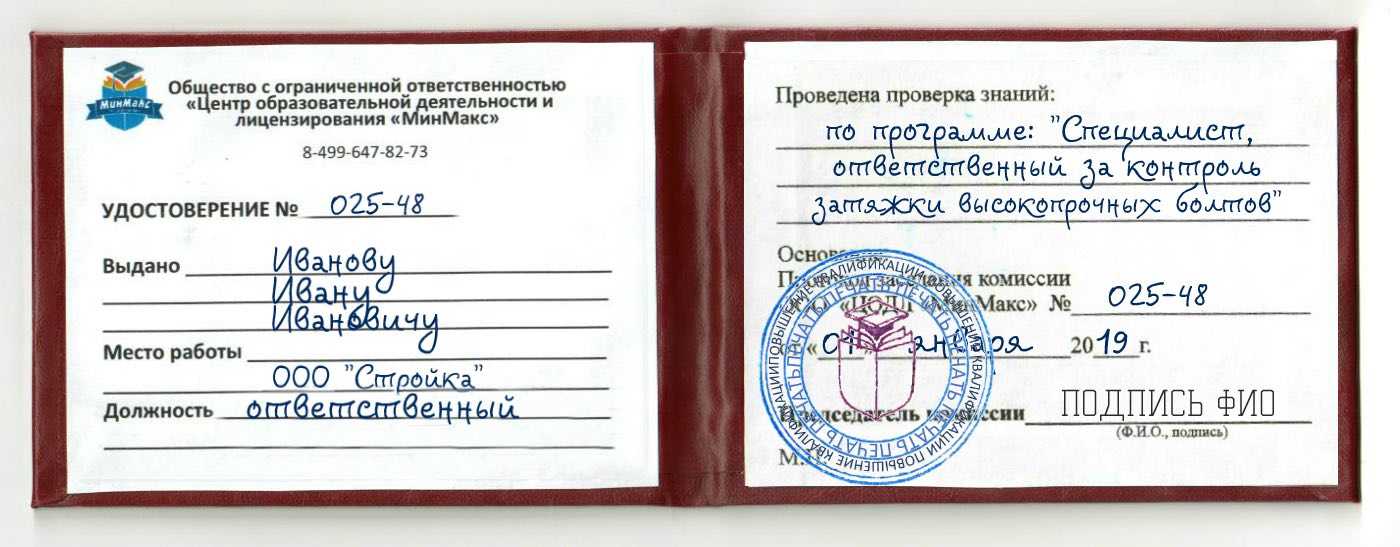 МинМакс
Общество с ограниченной ответственностью
«Центр образовательной деятельности и
лицензирования «МинМакс»
8-499-647-82-73
УДОСТОВЕРЕНИЕ № 025-48
Выдано Иванову
Ивану
Ивановичу
Место работы
ООО "Стройка"
Должность ответственный
Проведена проверка знаний:
по программе: "Специалист,
ответственный за контроль
затяжки высокопрочных болтов"
заседания комиссии
«ЦОДЛ «МинМакс» № 025-48
« 01 » января 2019 г.
Председатель комиссии ПОДПИСЬ ФИО
(Ф.И.О., подпись)
М.П.
ПОВЫШЕНИЕ КВАЛИФИКАЦИИ ПОВЫШЕНИЕ КВАЛИФИКАЦИИ ПОВЫШЕНИЕ КВАЛИФИКАЦИИ
ПЕЧАТЬ ПЕЧАТЬ ПЕЧАТЬ ПЕЧАТЬ ПЕЧАТЬ ПЕЧАТЬ